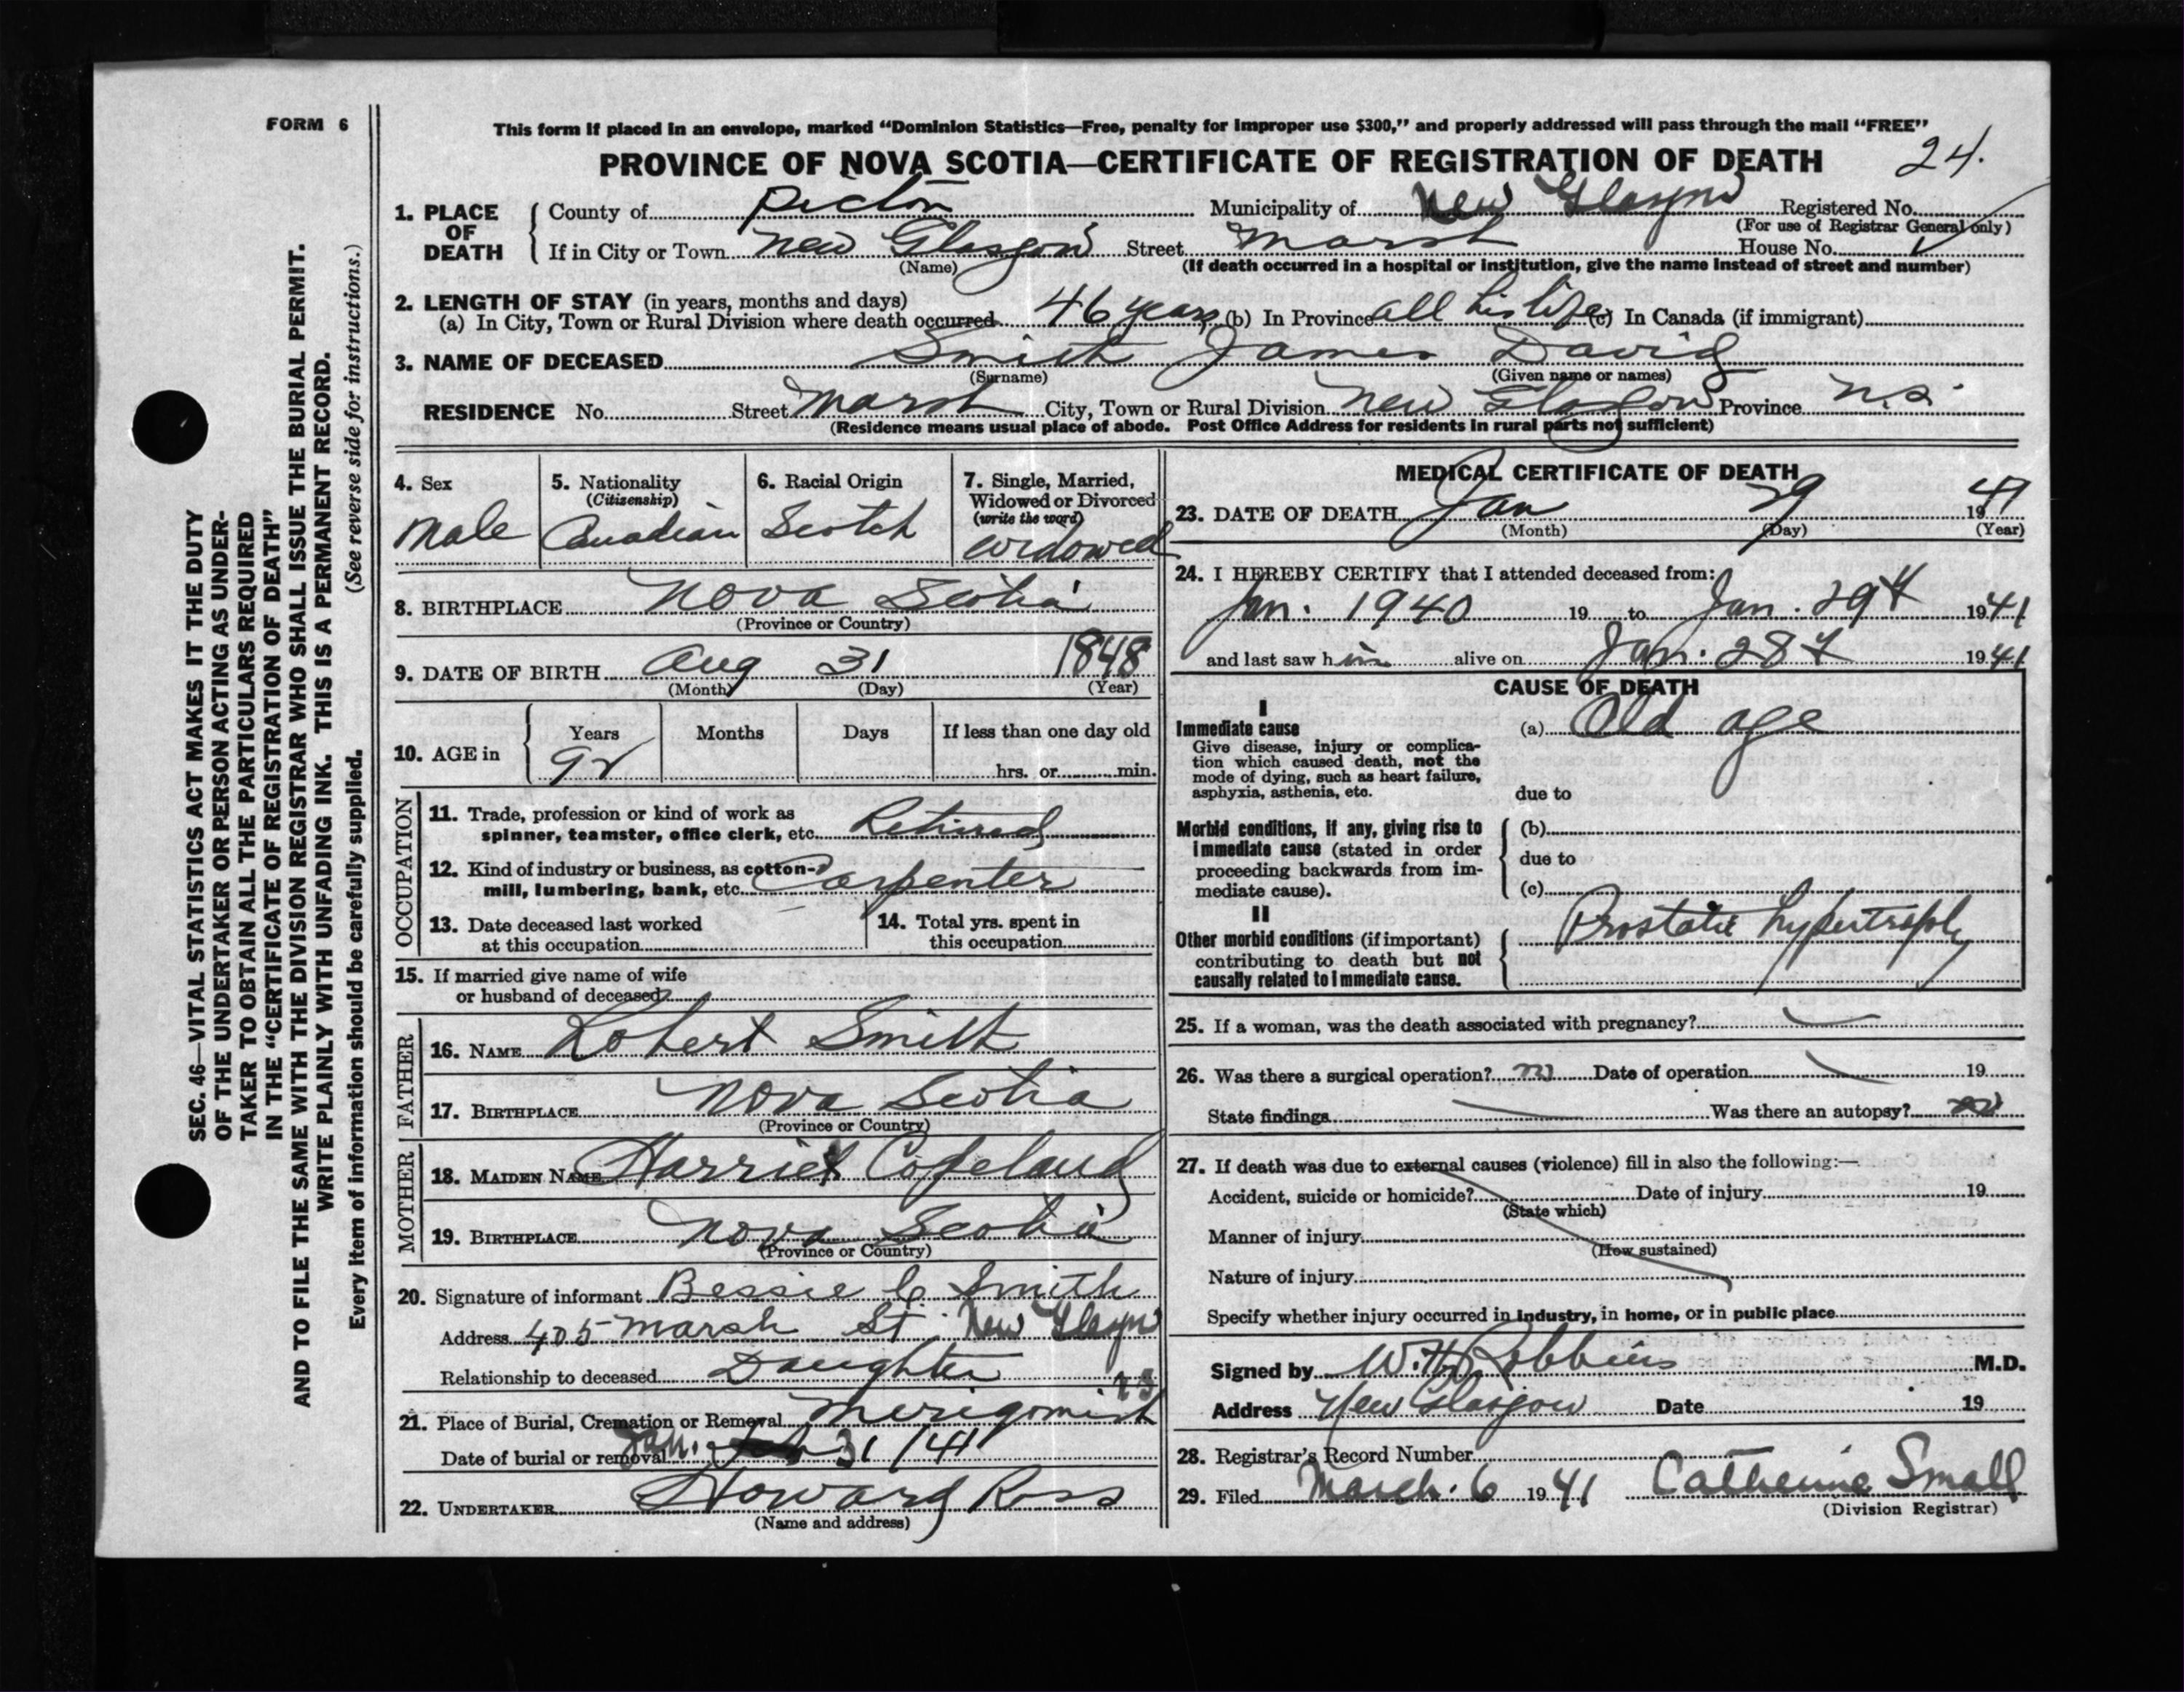 FORM 6
This form if placed in an envelope, marked “Dominion Statistics—Free, penalty for improper use $300,” and properly addressed will pass through the mail “FREE”
PROVINCE OF NOVA SCOTIA—CERTIFICATE OF REGISTRATION OF DEATH 24.
1. PLACE OF DEATH
County of Pictou Municipality of New Glasgow Registered No.
(For use of Registrar General only)
If in City or Town New Glasgow Street Marsh House No.
(Name) (If death occurred in a hospital or institution, give the name instead of street and number)
2. LENGTH OF STAY (in years, months and days)
(a) In City, Town or Rural Division where death occurred 46 years (b) In Province all his life (c) In Canada (if immigrant)
3. NAME OF DECEASED Smith James David
(Surname) (Given name or names)
RESIDENCE No. Street Marsh City, Town or Rural Division New Glasgow Province N.S.
(Residence means usual place of abode. Post Office Address for residents in rural parts not sufficient)
4. Sex
Male
5. Nationality
(Citizenship)
Canadian
6. Racial Origin
Scotch
7. Single, Married,
Widowed or Divorced
(write the word)
Widowed
8. BIRTHPLACE Nova Scotia
(Province or Country)
9. DATE OF BIRTH Aug 31 1848
(Month) (Day) (Year)
10. AGE in
Years Months Days If less than one day old
92 hrs. or min.
OCCUPATION
11. Trade, profession or kind of work as
spinner, teamster, office clerk, etc. Retired
12. Kind of industry or business, as cotton-
mill, lumbering, bank, etc. Carpenter
13. Date deceased last worked
at this occupation
14. Total yrs. spent in
this occupation
15. If married give name of wife
or husband of deceased
FATHER
16. NAME Robert Smith
17. BIRTHPLACE Nova Scotia
(Province or Country)
MOTHER
18. MAIDEN NAME Harriet Copeland
19. BIRTHPLACE Nova Scotia
(Province or Country)
20. Signature of informant Bessie C Smith
Address 405 Marsh St. New Glasgow
Relationship to deceased Daughter N.S.
21. Place of Burial, Cremation or Removal Merigomish
Date of burial or removal Jan. 31/41
22. UNDERTAKER Howard Ross
(Name and address)
MEDICAL CERTIFICATE OF DEATH
23. DATE OF DEATH Jan 29 1941
(Month) (Day) (Year)
24. I HEREBY CERTIFY that I attended deceased from:
Jan. 1940 19 to Jan. 29th 1941
and last saw him alive on Jan. 28th 1941
CAUSE OF DEATH
I
Immediate cause (a) Old age
Give disease, injury or complica-
tion which caused death, not the
mode of dying, such as heart failure,
asphyxia, asthenia, etc. due to
Morbid conditions, if any, giving rise to (b)
immediate cause (stated in order
proceeding backwards from im- due to
mediate cause). (c)
II
Other morbid conditions (if important) Prostatic hypertrophy
contributing to death but not
causally related to immediate cause.
25. If a woman, was the death associated with pregnancy?
26. Was there a surgical operation? no Date of operation 19
State findings Was there an autopsy? no
27. If death was due to external causes (violence) fill in also the following:—
Accident, suicide or homicide? Date of injury 19
(State which)
Manner of injury
(How sustained)
Nature of injury
Specify whether injury occurred in industry, in home, or in public place
Signed by W. H. Robbins M.D.
Address New Glasgow Date 19
28. Registrar's Record Number
29. Filed March 6 1941 Catherine Small
(Division Registrar)
SEC. 46—VITAL STATISTICS ACT MAKES IT THE DUTY
OF THE UNDERTAKER OR PERSON ACTING AS UNDER-
TAKER TO OBTAIN ALL THE PARTICULARS REQUIRED
IN THE “CERTIFICATE OF REGISTRATION OF DEATH”
AND TO FILE THE SAME WITH THE DIVISION REGISTRAR WHO SHALL ISSUE THE BURIAL PERMIT.
WRITE PLAINLY WITH UNFADING INK. THIS IS A PERMANENT RECORD.
Every item of information should be carefully supplied. (See reverse side for instructions.)